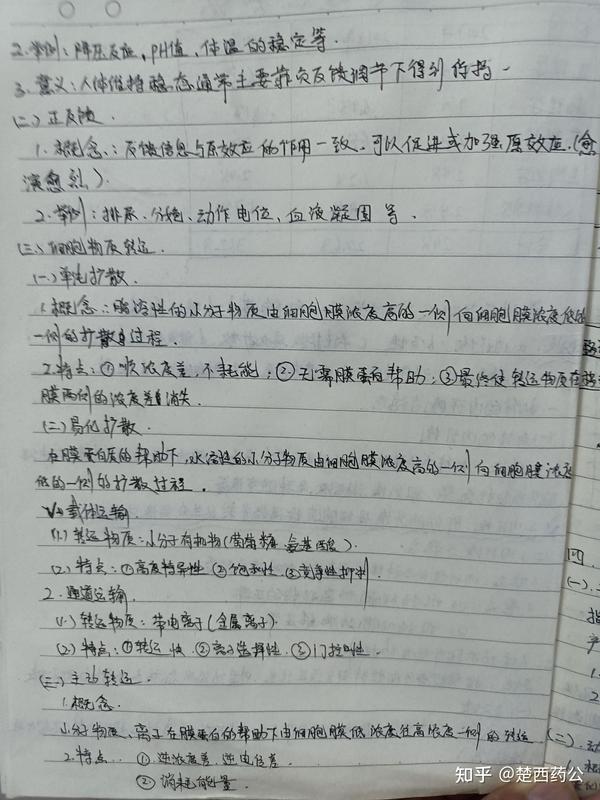 2. 举例：降压反应，PH值、体温的稳定等.
3. 意义：人体维持稳态通常主要靠负反馈调节下得到维持.
(二) 正反馈.
1. 概念：反馈信息与原效应的作用一致，可以促进或加强原效应.(愈
演愈烈).
2. 举例：排尿、分娩、动作电位、血液凝固等.
(三) 细胞物质转运.
(一) 单纯扩散.
1. 概念：脂溶性的小分子物质由细胞膜浓度高的一侧向细胞膜浓度低的
一侧的扩散过程.
2. 特点：①顺浓度差，不耗能；②无需膜蛋白帮助；③最终使转运物质在
膜两侧的浓度差消失.
(二) 易化扩散.
在膜蛋白质的帮助下，水溶性的小分子物质由细胞膜浓度高的一侧向细胞膜浓度
低的一侧的扩散过程.
1. 载体运输
(1) 转运物质：小分子有机物(葡萄糖、氨基酸).
(2) 特点：①高度特异性 ②饱和性 ③竞争性抑制.
2. 通道运输.
(1) 转运物质：带电离子(金属离子).
(2) 特点：①转运快 ②离子选择性 ③门控性.
(三) 主动转运.
1. 概念.
小分子物质、离子在膜蛋白的帮助下由细胞膜低浓度往高浓度一侧的转运
2. 特点. ①逆浓度差、逆电位差.
② 消耗能量.
四.
(一).
1.
2
(二). 动
1. 概
知乎 @楚西药公